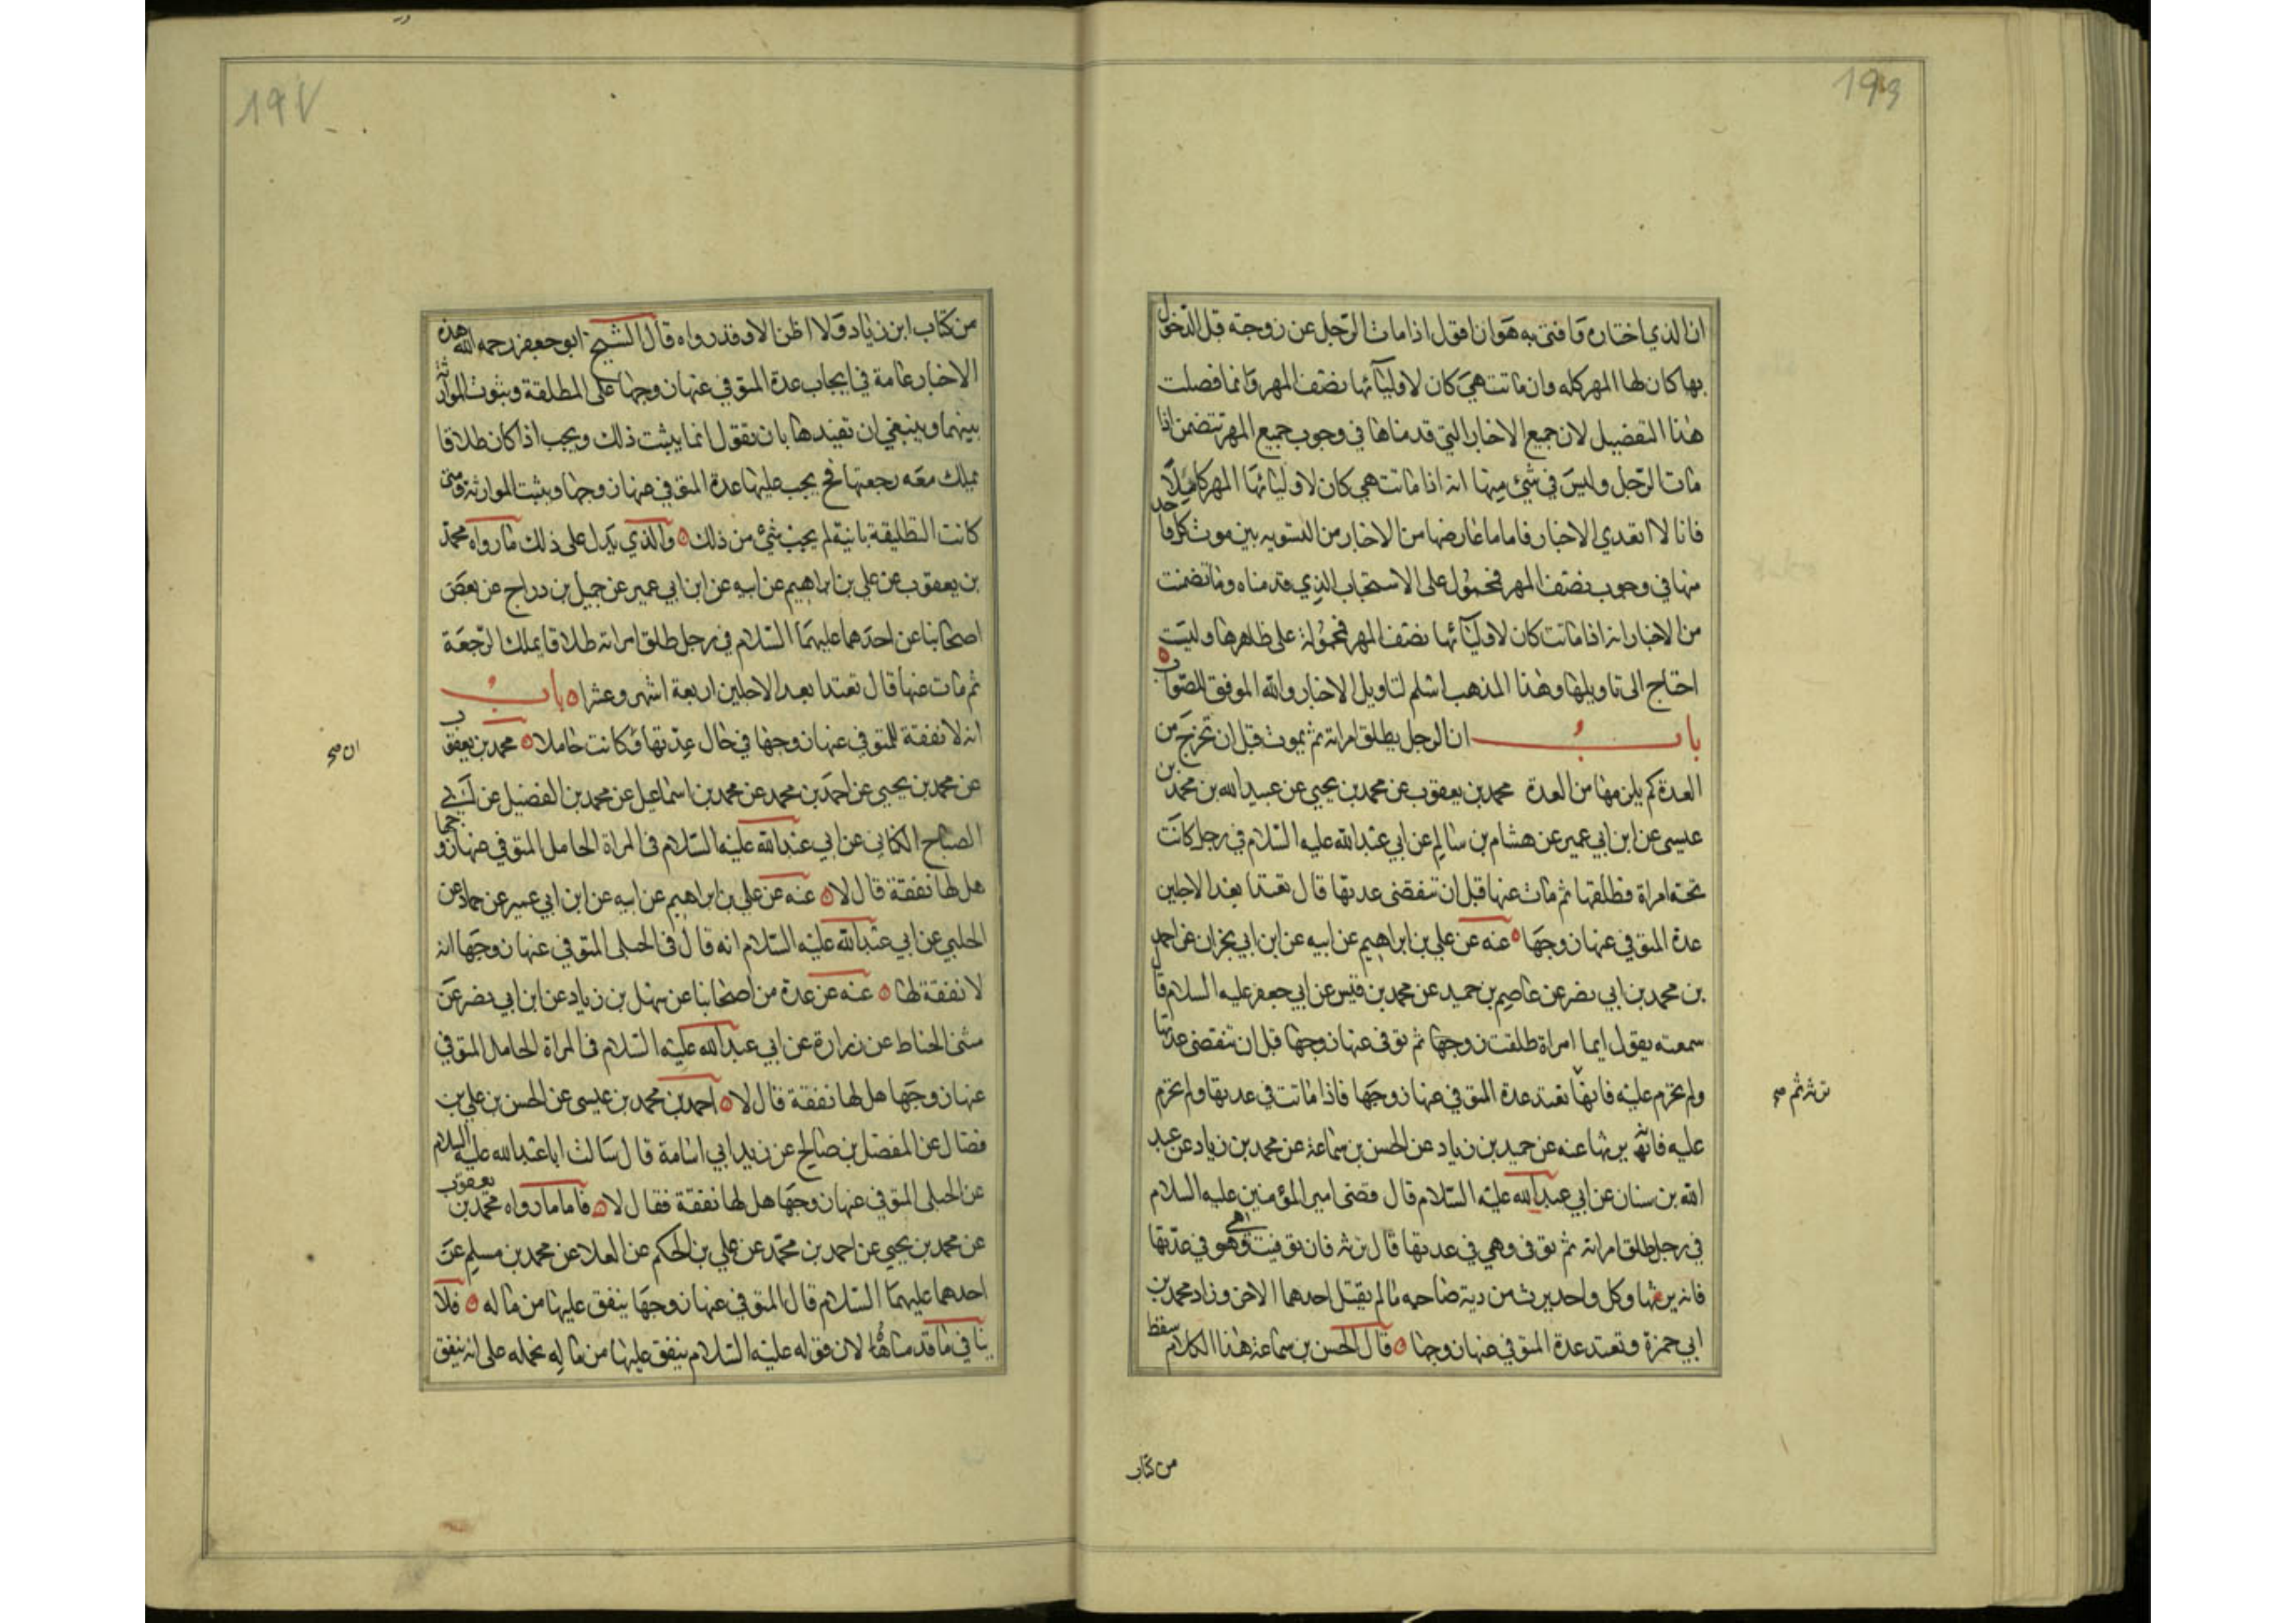 193
ان الذي اختاره وافتى به هو ان اقول اذا مات الرجل عن زوجته قبل الدخول
بها كان لها المهر كله وان ماتت هي كان لاوليائها نصف المهر وانما فصلت
هذا التفصيل لان جميع الاخبار التي قدمناها في وجوب جميع المهر تتضمن اذا
مات الرجل وليس في شئ منها انه اذا ماتت هي كان لاوليائها المهر كاملا
فانا لا اتعدي الاخبار فاما ما عارضها من الاخبار من التسويه بين موت كل واحد
منها في وجوب نصف المهر فمحمول على الاستحباب الذي قدمناه وما تضمنت
من الاخبار انه اذا ماتت كان لاوليائها نصف المهر فمحمولة على ظاهرها وليت
احتاج الى تاويلها وهذا المذهب اسلم لتاويل الاخبار والله الموفق للصواب
باب ان الرجل يطلق امراته ثم يموت قبل ان تخرج من
العدة كم يلزمها من العدة محمد بن يعقوب عن محمد بن يحيى عن عبيد الله بن محمد بن
عيسى عن ابن ابي عمير عن هشام بن سالم عن ابي عبد الله عليه السلام في رجل كانت
تحته امراة فطلقها ثم مات عنها قبل ان تنقضى عدتها قال تعتد ابعد الاجلين
عدة المتوفي عنها زوجها عنه عن علي بن ابراهيم عن ابيه عن ابن ابي نجران عن احمد
بن محمد بن ابي نصر عن عاصم بن حميد عن محمد بن قيس عن ابي جعفر عليه السلام قال
سمعته يقول ايما امراة طلقت زوجها ثم توفى عنها زوجها قبل ان تنقضى عدتها
ولم تحرم عليه فانها تعتد عدة المتوفي عنها زوجها فاذا ماتت في عدتها ولم تحرم
عليه فانه يرثها عنه عن حميد بن زياد عن الحسن بن سماعة عن محمد بن زياد عن عبد
الله بن سنان عن ابي عبد الله عليه السلام قال قضى امير المؤمنين عليه السلام
في رجل طلق امراته ثم توفى وهي في عدتها قال ترثه فان توفيت وهو في عدتها
فانه يرثها وكل واحد يرث من دية صاحبه ما لم يقتل احدهما الاخر وزاد محمد بن
ابي حمزة وتعتد عدة المتوفي عنها زوجها قال الحسن بن سماعة هذا الكلام سقط
ترثه ثم صح
من كتاب
197
من كتاب ابن زياد ولا اظن الا وقد رواه قال الشيخ ابو جعفر رحمه الله هذه
الاخبار عامة في ايجاب عدة المتوفي عنها زوجها على المطلقة وبثوت الموارثة
بينهما وينبغي ان تقيدها بان نقول انما يثبت ذلك ويجب اذا كان طلاقا
يملك معه رجعتها فح يجب عليها عدة المتوفي عنها زوجها ويثبت الموارثة ومتى
كانت التطليقة باينة لم يجب شئ من ذلك والذي يدل على ذلك ما رواه محمد
بن يعقوب عن علي بن ابراهيم عن ابيه عن ابن ابي عمير عن جميل بن دراج عن بعض
اصحابنا عن احدهما عليهما السلام في رجل طلق امراته طلاقا يملك الرجعة
ثم مات عنها قال تعتد ابعد الاجلين اربعة اشهر وعشرا باب
انه لا نفقة للمتوفي عنها زوجها في حال عدتها وكانت حاملا محمد بن يعقوب
عن محمد بن يحيى عن احمد بن محمد عن محمد بن اسماعيل عن محمد بن الفضيل عن ابي
الصباح الكناني عن ابي عبد الله عليه السلام في المراة الحامل المتوفي عنها زوجها
هل لها نفقة قال لا عنه عن علي بن ابراهيم عن ابيه عن ابن ابي عمير عن حماد عن
الحلبي عن ابي عبد الله عليه السلام انه قال في الحبلى المتوفي عنها زوجها انه
لا نفقة لها عنه عن عدة من اصحابنا عن سهل بن زياد عن ابن ابي نصر عن
مثنى الحناط عن زرارة عن ابي عبد الله عليه السلام في المراة الحامل المتوفي
عنها زوجها هل لها نفقة قال لا احمد بن محمد بن عيسى عن الحسن بن علي بن
فضال عن المفضل بن صالح عن زيد ابي اسامة قال سالت ابا عبد الله عليه السلام
عن الحبلى المتوفي عنها زوجها هل لها نفقة فقال لا فاما ما رواه محمد بن يعقوب
عن محمد بن يحيى عن احمد بن محمد عن علي بن الحكم عن العلا عن محمد بن مسلم عن
احدهما عليهما السلام قال المتوفي عنها زوجها ينفق عليها من ماله فلا
ينافي ما قدمناه لان قوله عليه السلام ينفق عليها من ماله نحمله على انه ينفق
ان صح